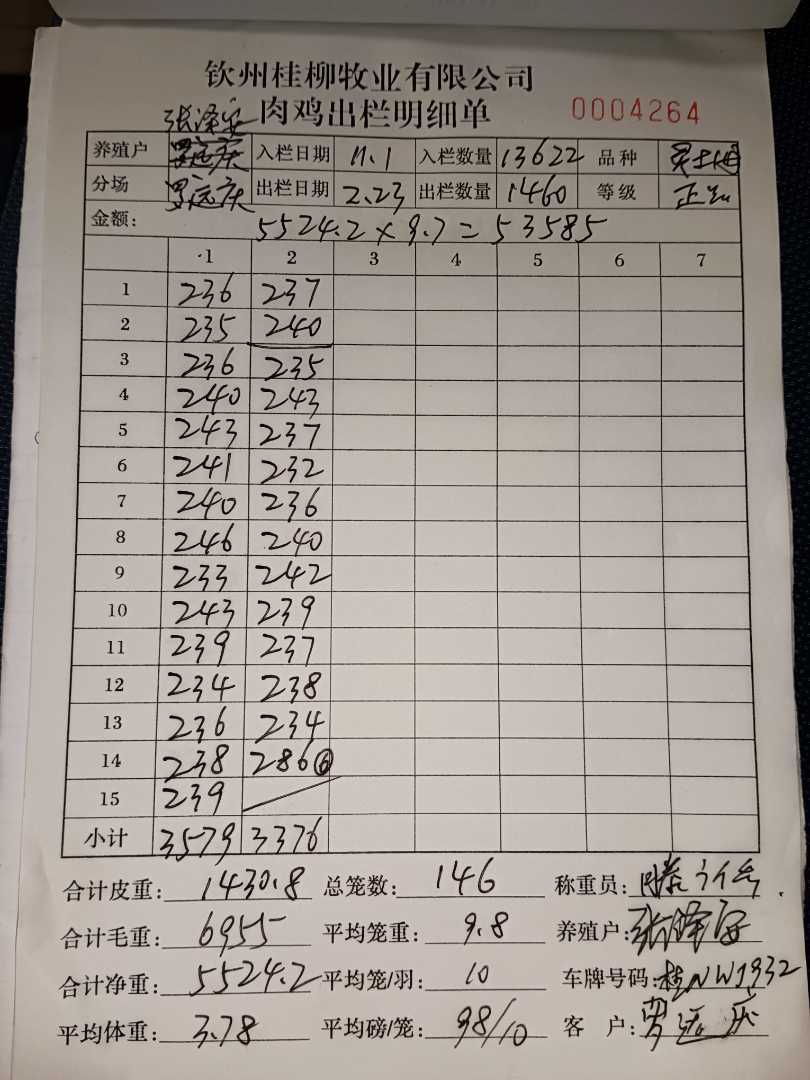 钦州桂柳牧业有限公司
肉鸡出栏明细单 0004264
张泽
养殖户 罗远庆 入栏日期 11.1 入栏数量 13622 品种
分场 罗远庆 出栏日期 2.23 出栏数量 1460 等级 正
金额: 5524.2×9.7=53585
1 2 3 4 5 6 7
1 236 237
2 235 240
3 236 235
4 240 243
5 243 237
6 241 232
7 240 236
8 246 240
9 233 242
10 243 239
11 239 237
12 234 238
13 236 234
14 238 286⑥
15 239
小计 3579 3376
合计皮重: 1430.8 总笼数: 146 称重员:
合计毛重: 6955 平均笼重: 9.8 养殖户: 张泽
合计净重: 5524.2 平均笼/羽: 10 车牌号码: 桂NW1932
平均体重: 3.78 平均磅/笼: 98/10 客 户: 罗远庆